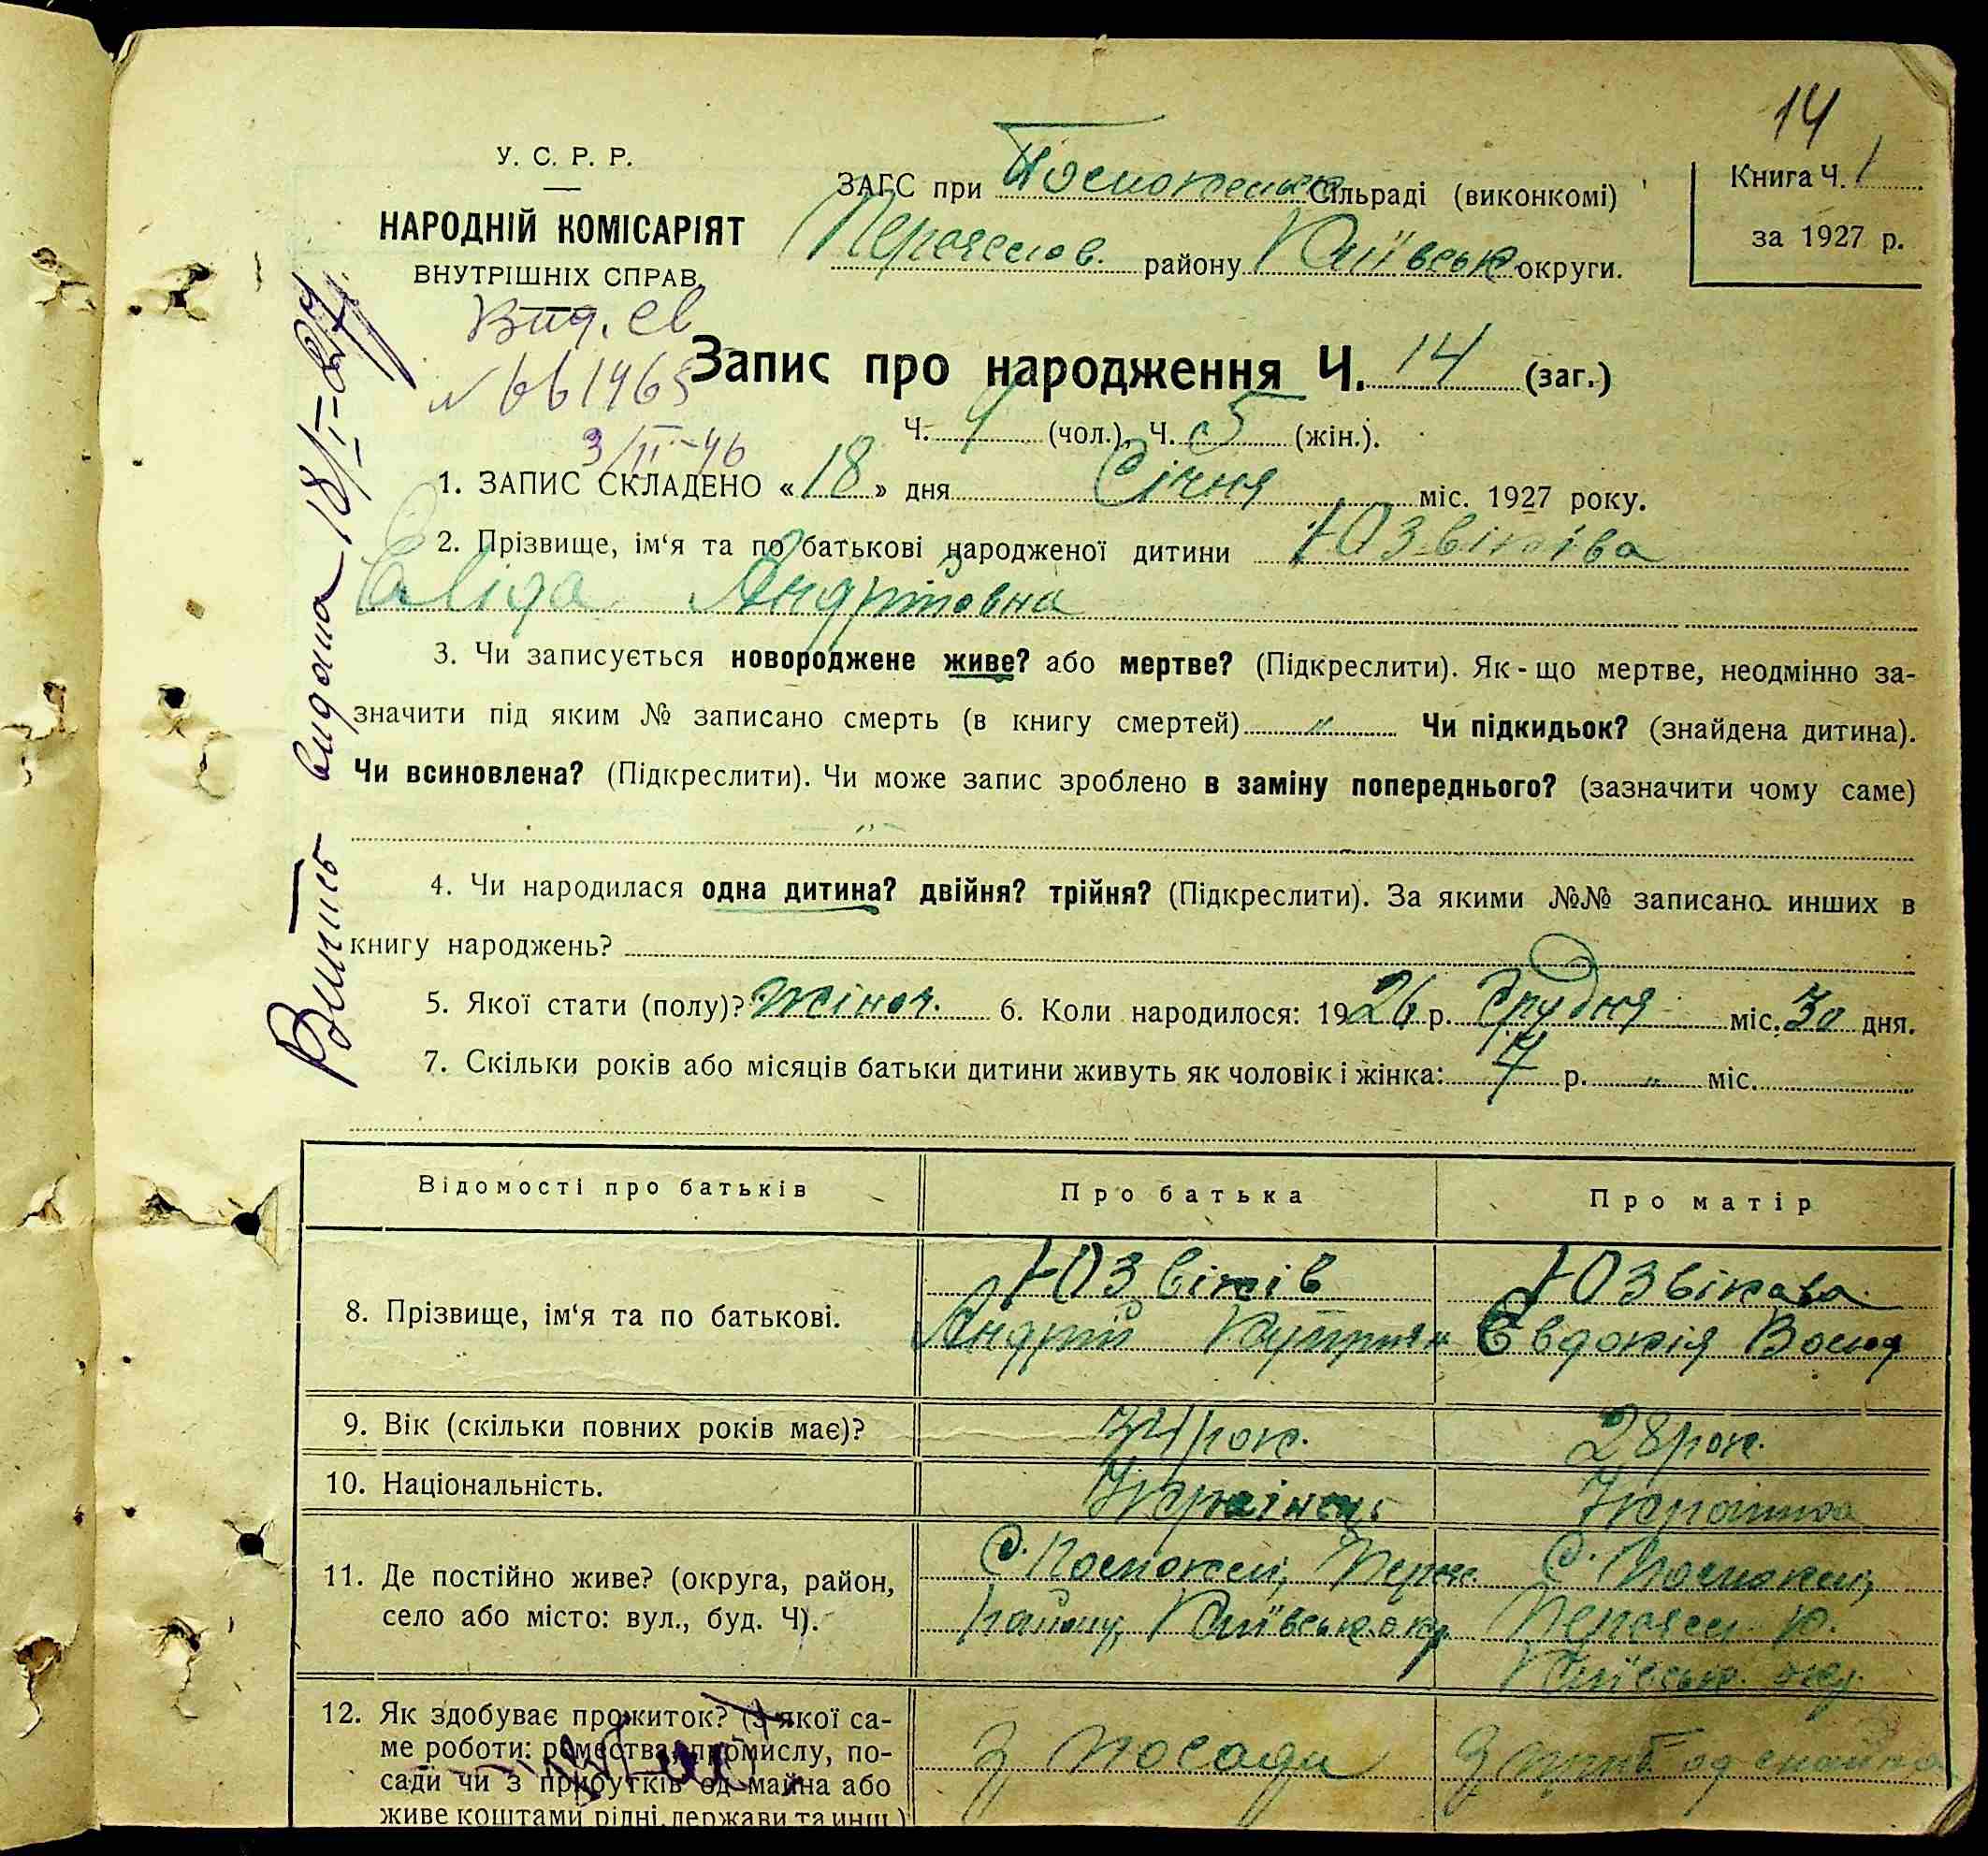 14
У. С. Р. Р.
НАРОДНІЙ КОМІСАРІЯТ
ВНУТРІШНІХ СПРАВ.
ЗАГС при Сільраді (виконкомі)
району Київськ округи.
Книга Ч. 1
за 1927 р.
Вид. св
N 661465
3/II-46
Запис про народження Ч. 14 (заг.)
Ч. (чол.), Ч. 5 (жін.).
1. ЗАПИС СКЛАДЕНО «18» дня Січня міс. 1927 року.
2. Прізвище, ім‘я та по батькові народженої дитини Юзвіківа
Ліда Андріївна
3. Чи записується новороджене живе? або мертве? (Підкреслити). Як-що мертве, неодмінно за-
значити під яким № записано смерть (в книгу смертей) „ Чи підкидьок? (знайдена дитина).
Чи всиновлена? (Підкреслити). Чи може запис зроблено в заміну попереднього? (зазначити чому саме)
„
4. Чи народилася одна дитина? двійня? трійня? (Підкреслити). За якими №№ записано инших в
книгу народжень?
5. Якої стати (полу)? жіноч. 6. Коли народилося: 1926 р. Грудня міс. 30 дня.
7. Скільки років або місяців батьки дитини живуть як чоловік і жінка: 7 р. „ міс.
Відомості про батьків Про батька Про матір
8. Прізвище, ім‘я та по батькові.
Юзвіків
Андрій
Юзвікова
Євдокія
9. Вік (скільки повних років має)? 34 рок. 28 рок.
10. Національність. Українець Українка
11. Де постійно живе? (округа, район,
село або місто: вул., буд. Ч).
району, Київськ окр.
Київськ. окр
12. Як здобуває прожиток? (З якої са-
ме роботи: ремества, промислу, по-
сади чи з прибутків од майна або
живе коштами рідні, держави та инш.)
З посади
З приб од
видана 18/I-